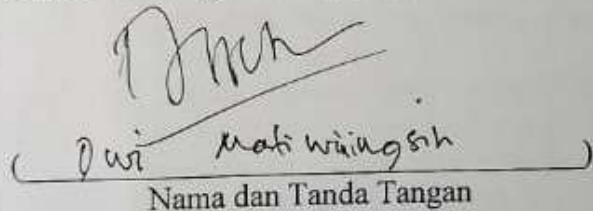 ( Dwi Mati wiingsih )
Nama dan Tanda Tangan